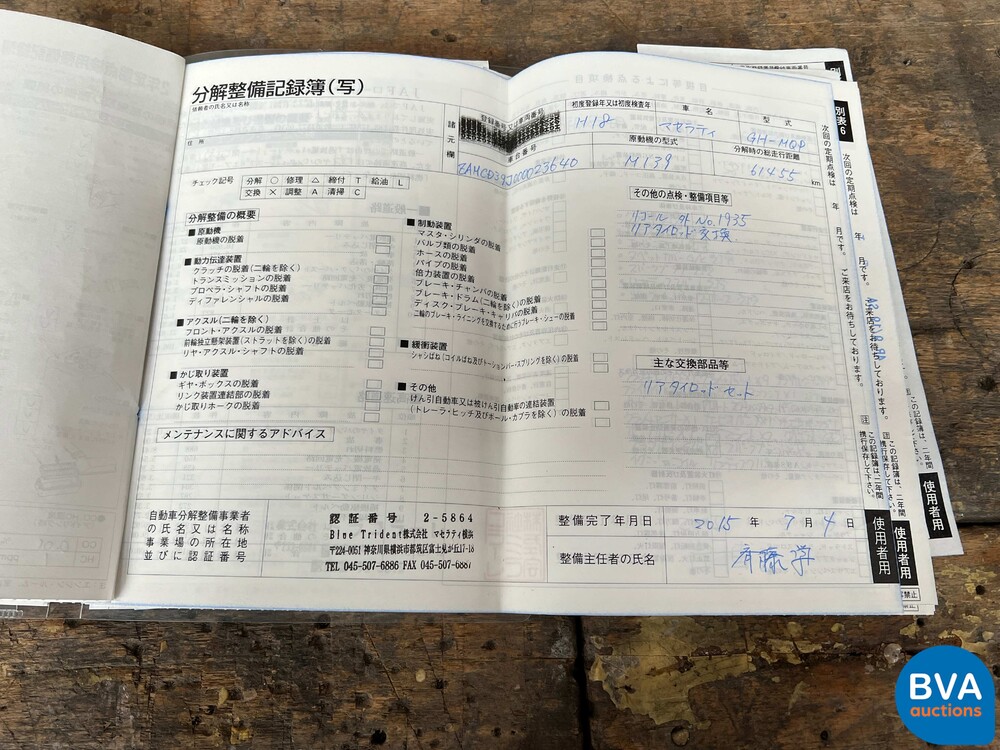 分解整備記録簿(写)
依頼者の氏名又は名称
住所
諸元欄
登録番号又は車両番号
初度登録年又は初度検査年
H18
車名
マセラティ
型式
GH-MQP
車台番号
原動機の型式
M139
分解時の総走行距離
61455 km
チェック記号
分解 ○ 修理 △ 締付 T 給油 L
交換 × 調整 A 清掃 C
分解整備の概要
■ 原動機
原動機の脱着
■ 動力伝達装置
クラッチの脱着(二輪を除く)
トランスミッションの脱着
プロペラ・シャフトの脱着
ディファレンシャルの脱着
■ アクスル(二輪を除く)
フロント・アクスルの脱着
前輪独立懸架装置(ストラットを除く)の脱着
リヤ・アクスル・シャフトの脱着
■ かじ取り装置
ギヤ・ボックスの脱着
リンク装置連結部の脱着
かじ取りホークの脱着
■ 制動装置
マスタ・シリンダの脱着
バルブ類の脱着
ホースの脱着
パイプの脱着
倍力装置の脱着
ブレーキ・チャンバの脱着
ブレーキ・ドラム(二輪を除く)の脱着
ディスク・ブレーキ・キャリパの脱着
二輪のブレーキ・ライニングを交換するために行うブレーキ・シューの脱着
■ 緩衝装置
シャシばね(コイルばね及びトーションバー・スプリングを除く)の脱着
■ その他
けん引自動車又は被けん引自動車の連結装置
(トレーラ・ヒッチ及びボール・カプラを除く)の脱着
その他の点検・整備項目等
リコール 外No.1935
リアタイロッド交換
主な交換部品等
リアタイロッド セット
メンテナンスに関するアドバイス
自動車分解整備事業者
の氏名又は名称
事業場の所在地
並びに認証番号
認証番号 2-5864
Blue Trident株式会社 マセラティ横浜
〒224-0051 神奈川県横浜市都筑区富士見が丘17-18
TEL 045-507-6886 FAX 045-507-6887
整備完了年月日
2015 年 7 月 4 日
整備主任者の氏名
斉藤 学
次回の定期点検は 年 月です。 ご来店をお待ちしております。
注 この記録簿は、二年間携行保存して下さい。
使用者用
別表6
次回の定期点検は 年 月です。
使用者用
使用者用
BVA
auctions